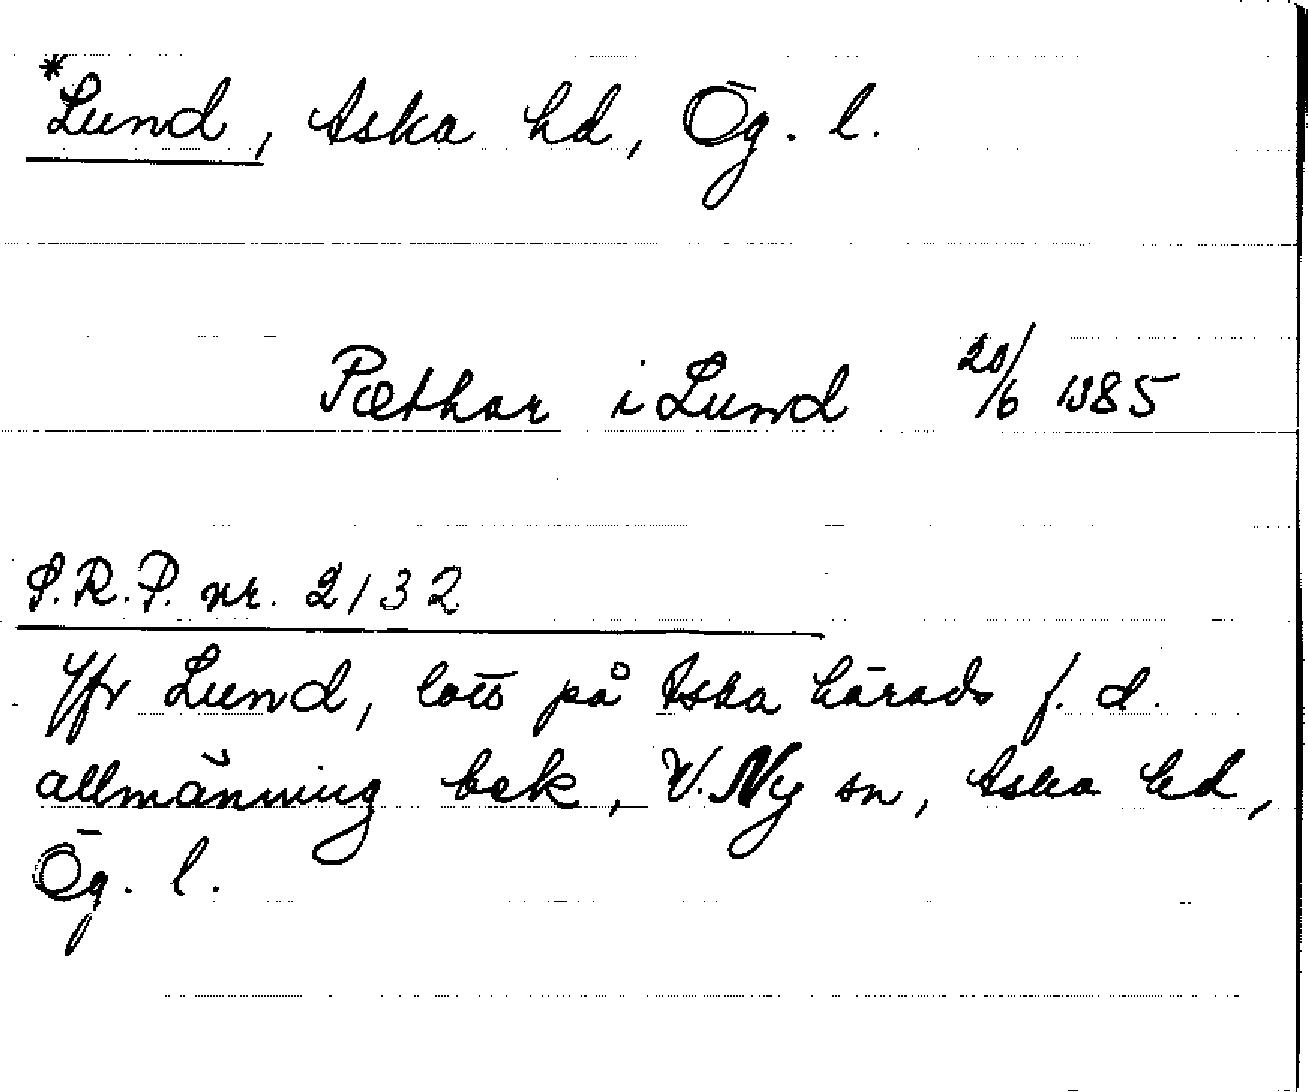 *Lund, Aska hd, Ög. l.
Pæthar i Lund 20/6 1385
S.R.P. nr. 2132
Jfr Lund, lott på Aska härads f. d.
allmänning bek, V. Ny sn, Aska hd,
Ög. l.